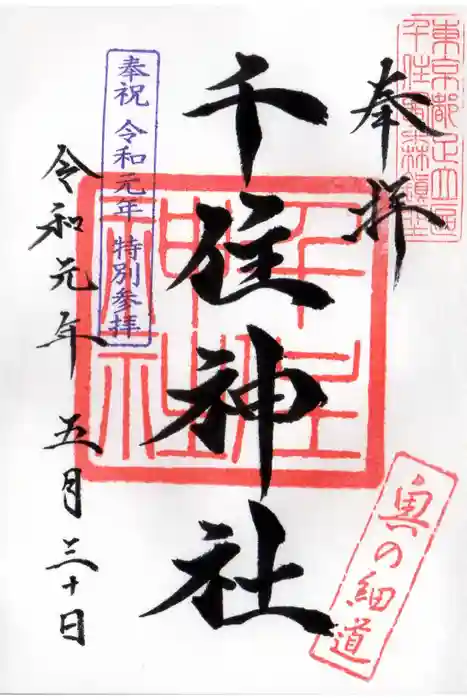 東京都足立區
千住宮森鎮座
奉拝
千住神社
千住
神社
奉祝 令和元年 特別参拝
令和元年 五月三十日
奥の細道